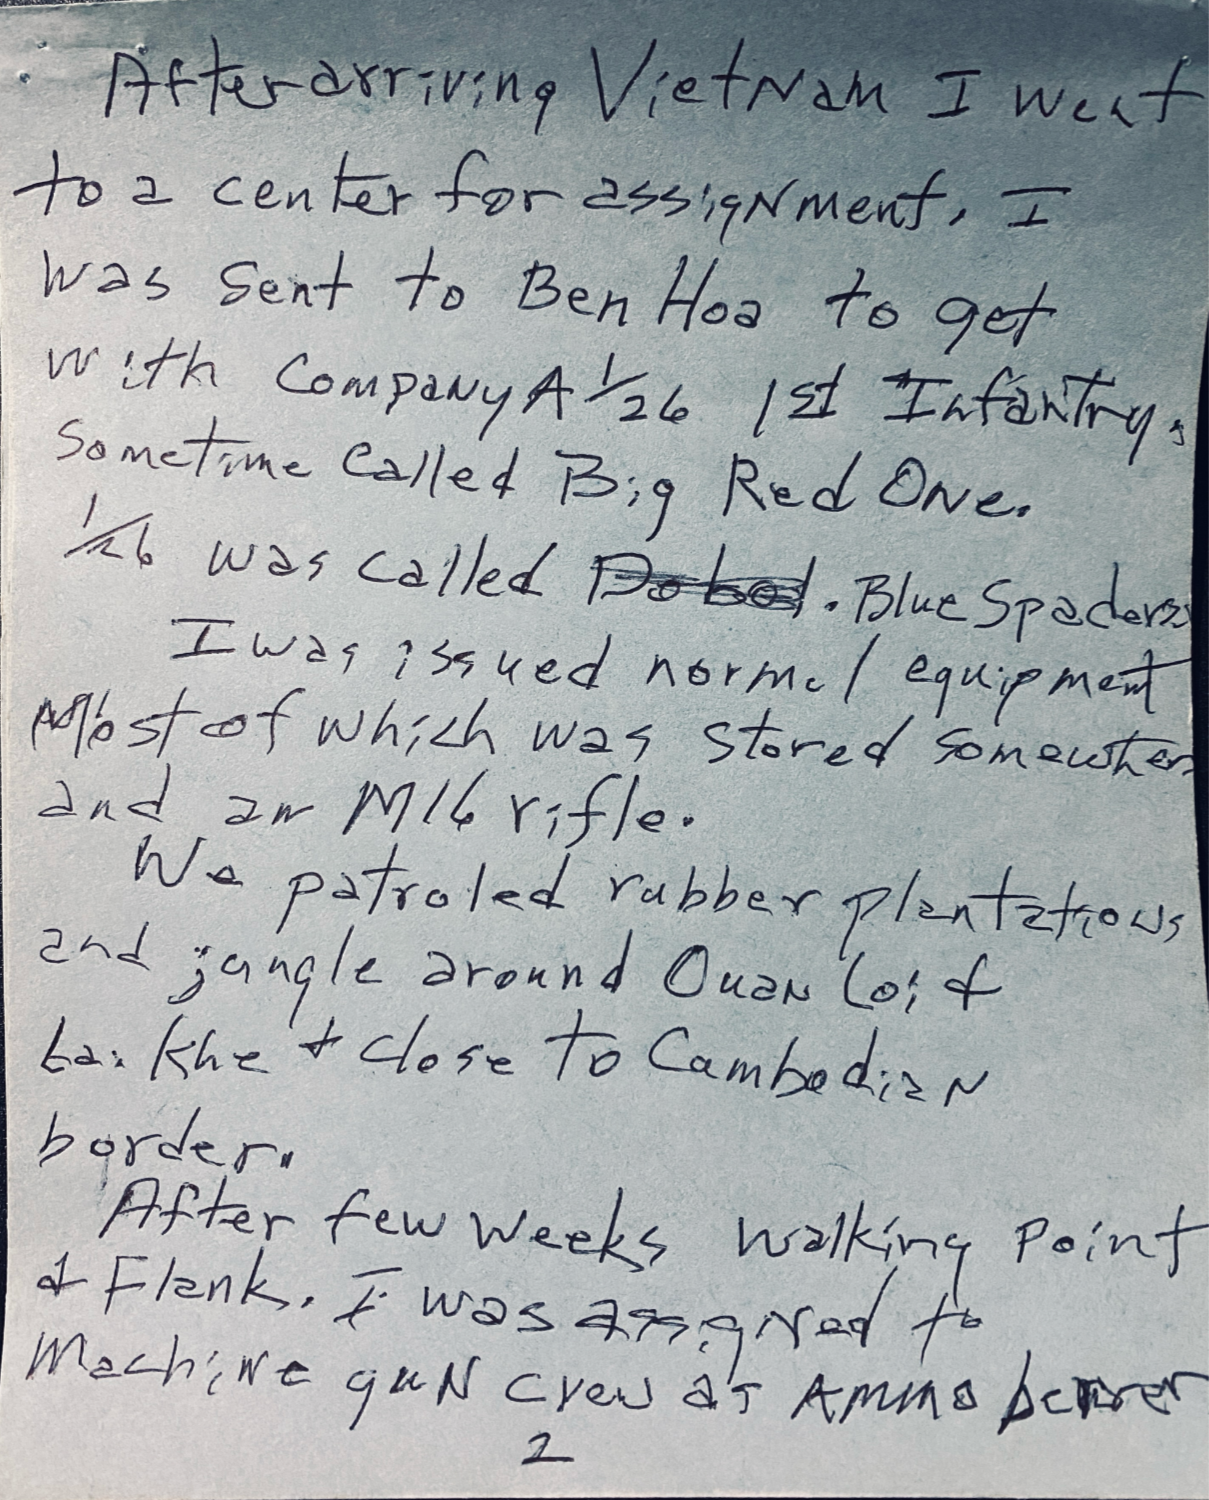 After arriving VietNam I went
to a center for assigNment. I
was sent to Ben Hoa to get
with CompaNy A 1/26 1st Infantry.
Sometime Called Big Red ONe.
1/26 was called . Blue Spaders
I was issued normal equipment
Most of which was stored somewher
and an M16 rifle.
We patroled rubber plantations
and jungle around Quan Loi &
Lai Khe & Close to CambodiaN
border.
After few Weeks Walking Point
& Flank. I was assigNed to
MachiNe guN Crew as Ammo bearer
2